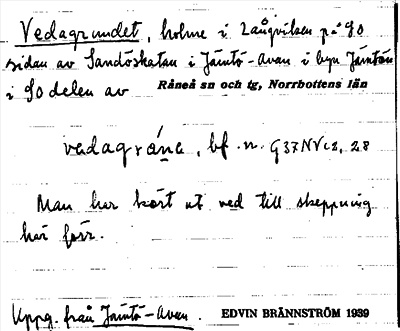 Vedagrundet, holme i Långviken på So
sidan av Sandöskatan i Jämtö-Avan i byn Jämtön
i So delen av Råneå sn och tg, Norrbottens län
vedagrúne, bf. n. G37NV c2, 28
Man har kört ut ved till skeppning
här förr.
Uppg. från Jämtö-Avan. EDVIN BRÄNNSTRÖM 1939